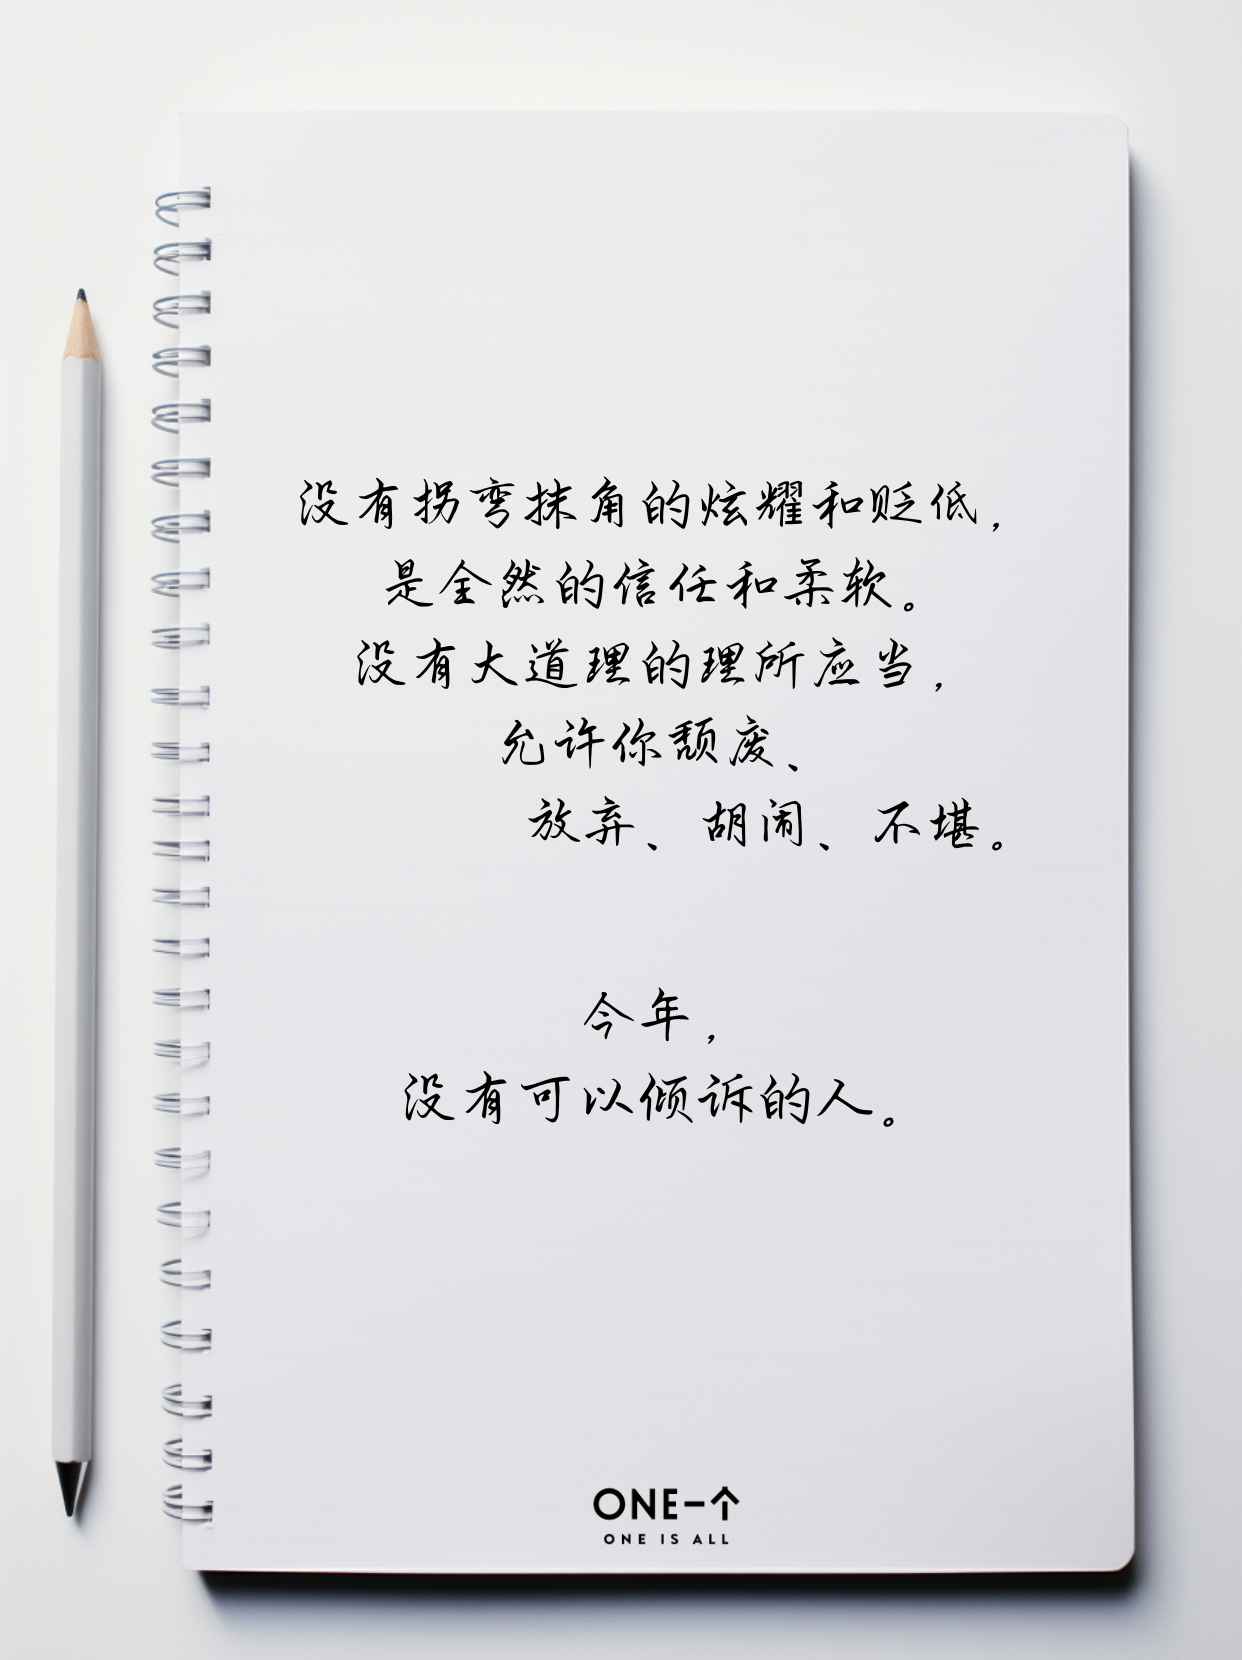 没有拐弯抹角的炫耀和贬低，
是全然的信任和柔软。
没有大道理的理所应当，
允许你颓废、
放弃、胡闹、不堪。
今年，
没有可以倾诉的人。
ONE一个
ONE IS ALL